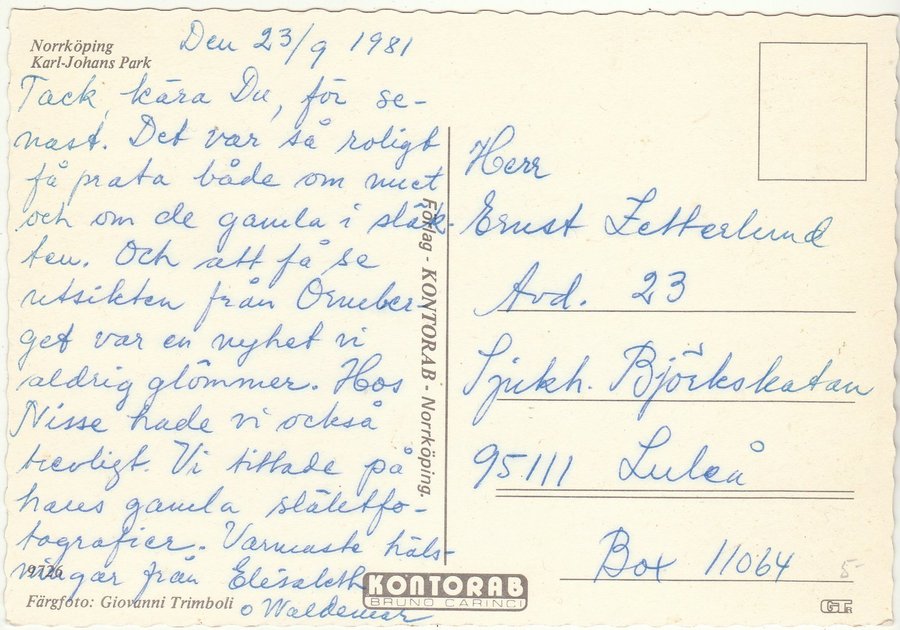 Norrköping
Karl-Johans Park
Den 23/9 1981
Tack, kära Du, för se-
nast. Det var så roligt
få prata både om nuet
och om de gamla i släk-
ten. Och att få se
utsikten från Orrneber-
get var en nyhet vi
aldrig glömmer. Hos
Nisse hade vi också
trevligt. Vi tittade på
hans gamla släktfo-
tografier. Varmaste häls-
ningar från Elisabeth
o Waldemar
9726
Färgfoto: Giovanni Trimboli
Förlag - KONTORAB - Norrköping.
KONTORAB
BRUNO CARINCI
Herr
Ernst Zetterlund
Avd. 23
Sjukh. Björkskatan
95111 Luleå
Box 11064
5-